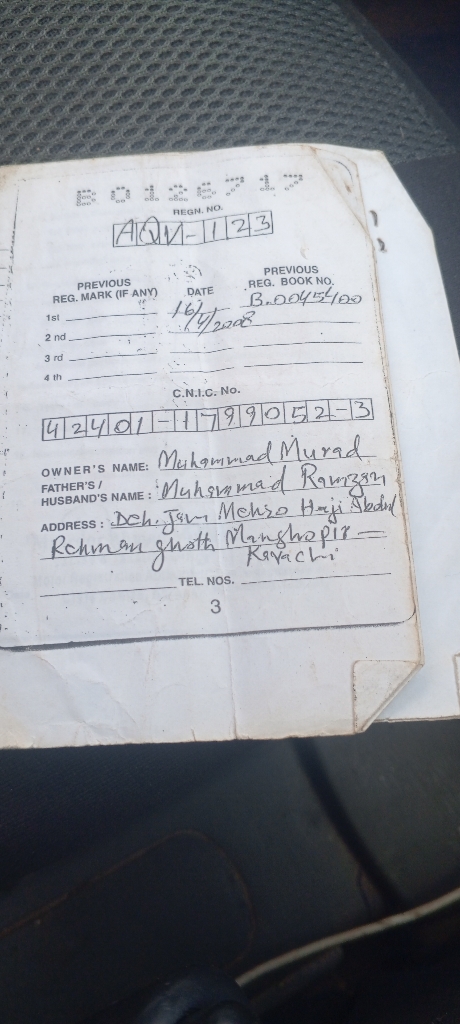 B0126717
REGN. NO.
AQV-123
PREVIOUS REG. MARK (IF ANY) DATE PREVIOUS REG. BOOK NO.
1st 16/7/2008 B.0045400
2 nd
3 rd
4 th
C.N.I.C. No.
42401-1799052-3
OWNER'S NAME: Muhammad Murad
FATHER'S / HUSBAND'S NAME : Muhammad Ramzan
ADDRESS : Deh. Jam Mehso Haji Abdul
Rehman ghoth Manghopir
Karachi
TEL. NOS.
3